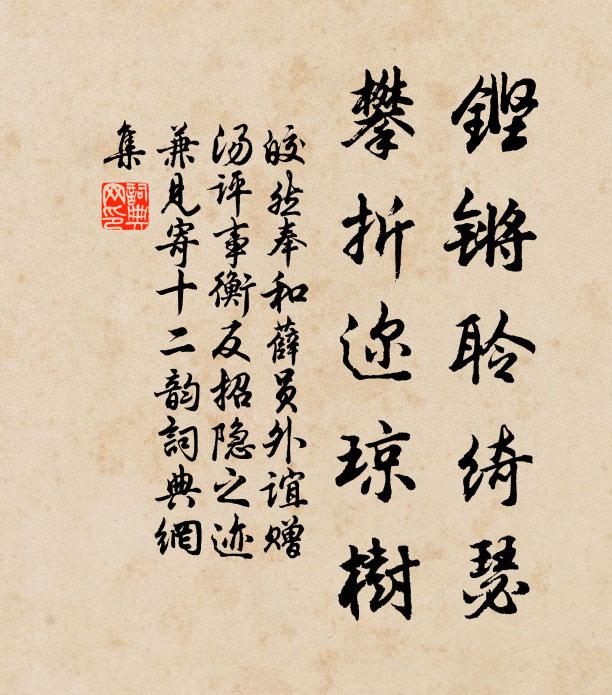 铿锵聆绮瑟
攀折迩琼樹
皎然奉和薛员外谊赠
汤评事衡反招隐之迹
兼見寄十二韵詞典網
集
詞典
网印